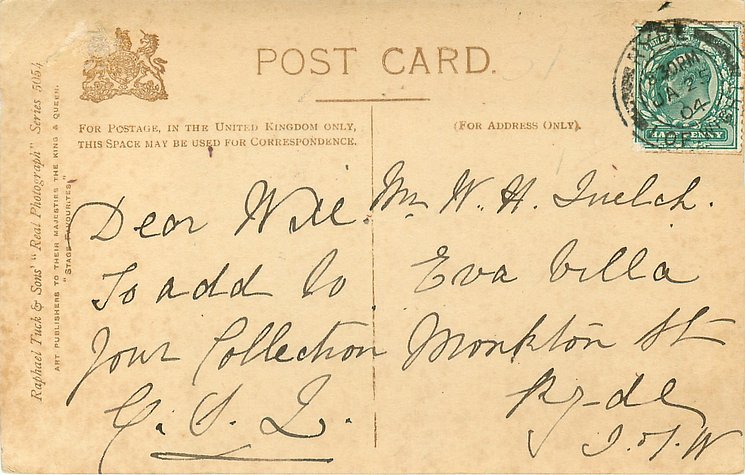 POST CARD.
FOR POSTAGE, IN THE UNITED KINGDOM ONLY,
THIS SPACE MAY BE USED FOR CORRESPONDENCE.
(FOR ADDRESS ONLY).
Raphael Tuck & Sons' "Real Photograph" Series 5054
ART PUBLISHERS TO THEIR MAJESTIES THE KING & QUEEN.
"STAGE FAVOURITES"
RYDE
8.30PM
JA 25
04
HALFPENNY
Dear Will.
To add to
Your Collection
Mr W. H. Juelch.
Eva Villa
Monkton St
Ryde
I. of W